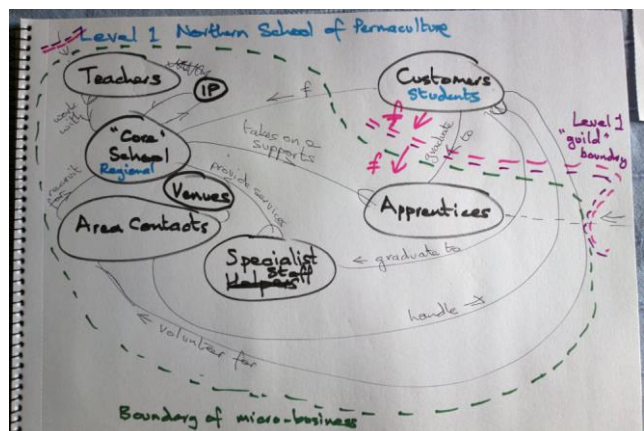 Level 1 Northern School of Permaculture
Teachers
IP
Customers
Students
£
work
with
"Core"
School
Regional
takes on a
supports
£
£
graduate
to
Level 1
"guild"
boundary
Venues
provide services
recruit
for
Area Contacts
Apprentices
Specialist
Staff
Helpers
graduate to
handle
volunteer for
Boundary of micro-business